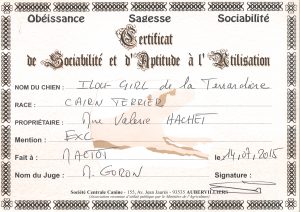 Obéissance Sagesse Sociabilité
Certificat
de Sociabilité et d'Aptitude à l'Utilisation
NOM DU CHIEN : GIRL de la
RACE : CAIRN TERRIER
PROPRIÉTAIRE : Mme Valerie HACHET
Mention : EXC
Fait à : le 2015
Nom du Juge : M. GORON Signature :
Société Centrale Canine - 155, Av. Jean Jaurès - 93535 AUBERVILLIERS
(Association reconnue d'utilité publique par le Ministère de l'Agriculture)